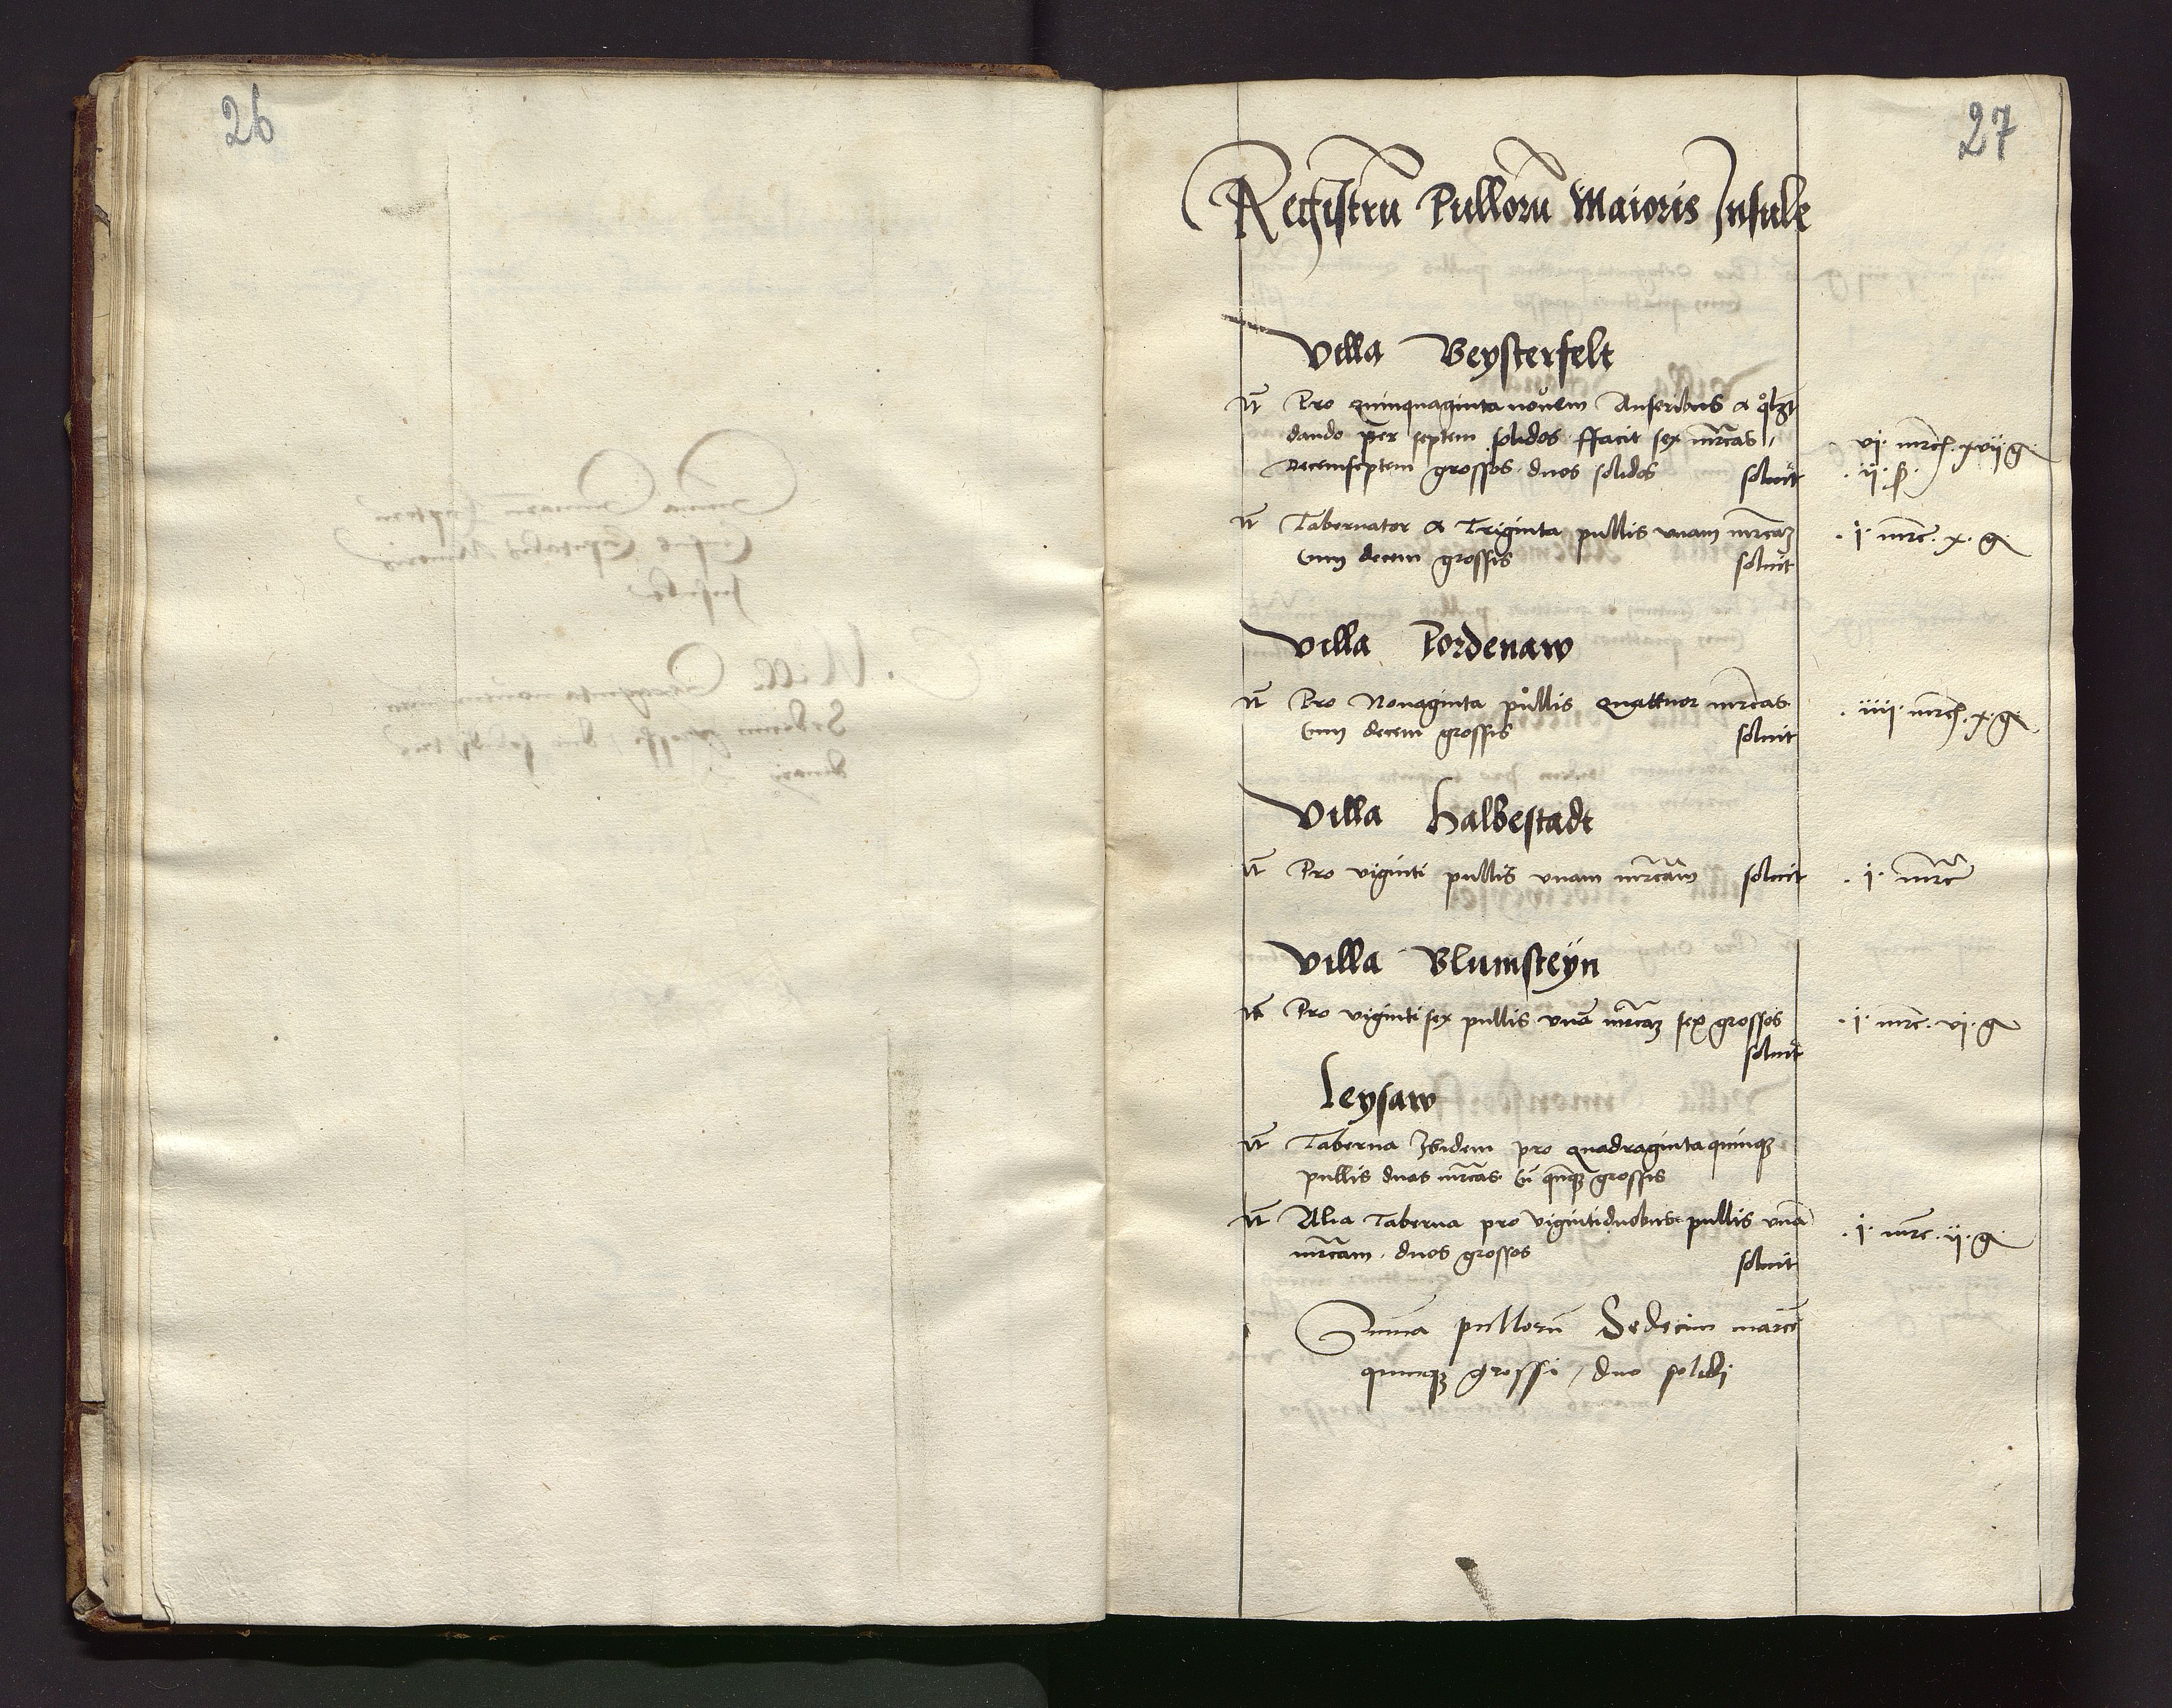 26
27
Registrũ Pullorũ Maioris Insule
Villa Beysterfelt
Itẽ Pro quinquaginta nouem Anseribus a qͦlzt
dando per septem solidos ffacit sex mrcas,
Decemseptem grossos duos solidos soluit
vj. mrcͭ. xvij. g.
.ij. ß.
Itẽ Tabernator a Triginta pullis vnam mrcaz
Cum decem grossis soluit
.j. mrc. x. g.
Villa Pordenaw
Itẽ Pro Nonaginta pullis quattuor mrcas
Cum decem grossis soluit
.iiij. mrc. x. g.
Villa Halbestadt
Itẽ Pro viginti pullis vnam mrcam soluit
.j. mrc
Villa Blumsteyn
Itẽ Pro vigintisex pullis vnã mrcaz sex grossos
soluit
.j. mrc. vj. g
Leysaw
Itẽ Taberna Ibidem pro quadragintaquinqz
pullis duas mrcas cũ qnqz grossis
Itẽ Alia Taberna pro vigintiduobus pullis vnã
mrcam. duos grossos
soluit
.j. mrc. ij. g.
Suma pullorũ Sedecim marce
quinqz grossi, duo solidi